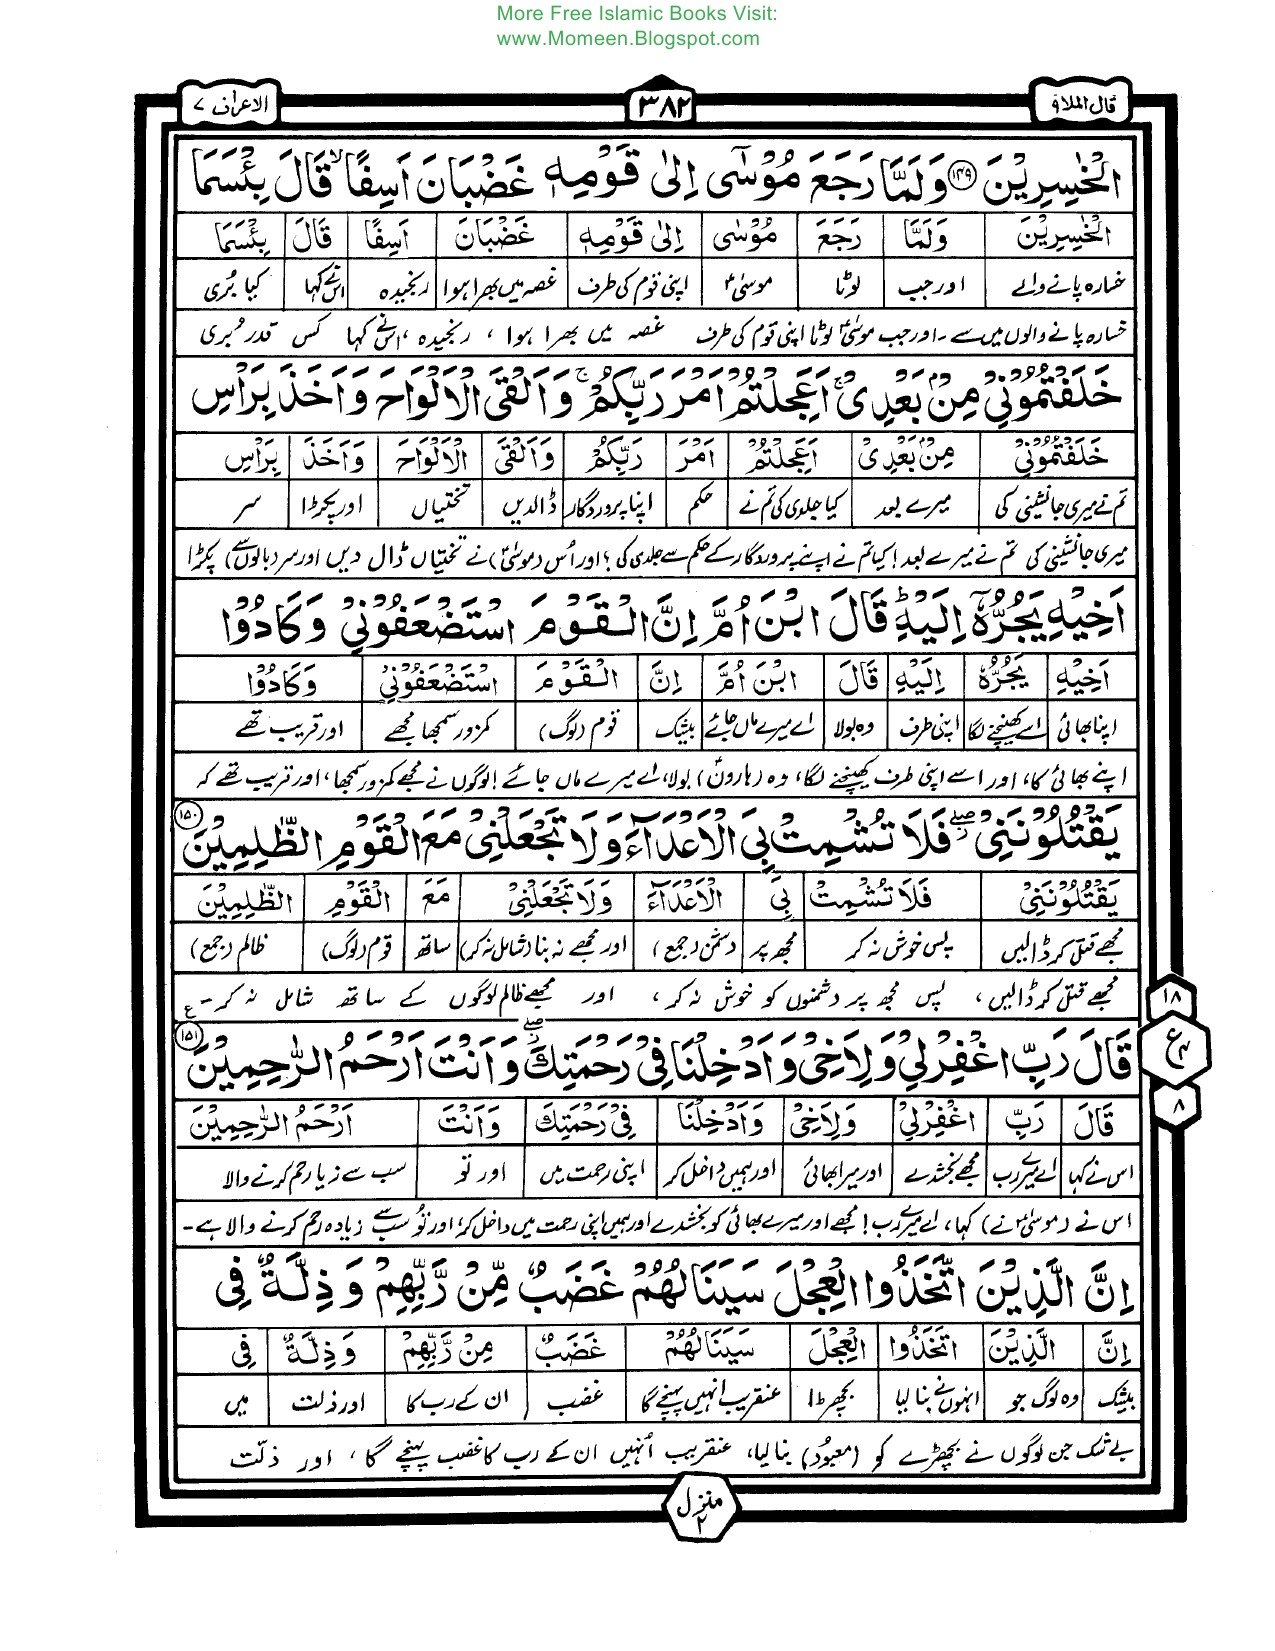 More Free Islamic Books Visit:
www.Momeen.Blogspot.com
قال الملا ۹
۳۸۲
الاعراف ۷
الْخٰسِرِيْنَ ۝۱۴۹ وَلَمَّا رَجَعَ مُوْسٰٓى اِلٰى قَوْمِهٖ غَضْبَانَ اَسِفًا ۙ قَالَ بِئْسَمَا
الْخٰسِرِيْنَ وَلَمَّا رَجَعَ مُوْسٰى اِلٰى قَوْمِهٖ غَضْبَانَ اَسِفًا قَالَ بِئْسَمَا
خسارہ پانے والے اور جب لوٹا موسیٰؑ اپنی قوم کی طرف غصہ میں بھرا ہوا رنجیدہ اس نے کہا کیا بُری
خسارہ پانے والوں میں سے ۔ اور جب موسیٰؑ لوٹا اپنی قوم کی طرف غصہ میں بھرا ہوا ، رنجیدہ ، اس نے کہا کس قدر بُری
خَلَفْتُمُوْنِيْ مِنْۢ بَعْدِيْ ۚ اَعَجِلْتُمْ اَمْرَ رَبِّكُمْ ۚ وَاَلْقَى الْاَلْوَاحَ وَاَخَذَ بِرَاْسِ
خَلَفْتُمُوْنِيْ مِنْۢ بَعْدِيْ اَعَجِلْتُمْ اَمْرَ رَبِّكُمْ وَاَلْقَى الْاَلْوَاحَ وَاَخَذَ بِرَاْسِ
تم نے میری جانشینی کی میرے بعد کیا جلدی کی تم نے حکم اپنا پروردگار ڈالدیں تختیاں اور پکڑا سر
میری جانشینی کی تم نے میرے بعد ! کیا تم نے اپنے پروردگار کے حکم سے جلدی کی ؟ اور اُس (موسیٰؑ) نے تختیاں ڈال دیں اور سر (بالوں سے) پکڑا
اَخِيْهِ يَجُرُّهٗٓ اِلَيْهِ ؕ قَالَ ابْنَ اُمَّ اِنَّ الْقَوْمَ اسْتَضْعَفُوْنِيْ وَكَادُوْا
اَخِيْهِ يَجُرُّهٗٓ اِلَيْهِ قَالَ ابْنَ اُمَّ اِنَّ الْقَوْمَ اسْتَضْعَفُوْنِيْ وَكَادُوْا
اپنا بھائی اسے کھینچنے لگا اپنی طرف وہ بولا اے میرے ماں جائے بیشک قوم (لوگ) کمزور سمجھا مجھے اور قریب تھے
اپنے بھائی کا ، اور اسے اپنی طرف کھینچنے لگا ، وہ (ہارونؑ) بولا ، اے میرے ماں جائے ! لوگوں نے مجھے کمزور سمجھا ، اور قریب تھے کہ
يَقْتُلُوْنَنِيْ ۖ فَلَا تُشْمِتْ بِيَ الْاَعْدَآءَ وَلَا تَجْعَلْنِيْ مَعَ الْقَوْمِ الظّٰلِمِيْنَ ۝۱۵۰
يَقْتُلُوْنَنِيْ فَلَا تُشْمِتْ بِيَ الْاَعْدَآءَ وَلَا تَجْعَلْنِيْ مَعَ الْقَوْمِ الظّٰلِمِيْنَ
مجھے قتل کر ڈالیں پس خوش نہ کر مجھ پر دشمن (جمع) اور مجھے نہ بنا (شامل نہ کر) ساتھ قوم (لوگ) ظالم (جمع)
مجھے قتل کر ڈالیں ، پس مجھ پر دشمنوں کو خوش نہ کر ، اور مجھے ظالم لوگوں کے ساتھ شامل نہ کر ۔ ع
قَالَ رَبِّ اغْفِرْلِيْ وَلِاَخِيْ وَاَدْخِلْنَا فِيْ رَحْمَتِكَ ۖ وَاَنْتَ اَرْحَمُ الرّٰحِمِيْنَ ۝۱۵۱
۱۸
ع
۸
قَالَ رَبِّ اغْفِرْلِيْ وَلِاَخِيْ وَاَدْخِلْنَا فِيْ رَحْمَتِكَ وَاَنْتَ اَرْحَمُ الرّٰحِمِيْنَ
اس نے کہا اے میرے رب مجھے بخشدے اور میرا بھائی اور ہمیں داخل کر اپنی رحمت میں اور تو سب سے زیادہ رحم کرنے والا
اس نے (موسیٰؑ نے) کہا ، اے میرے رب ! مجھے اور میرے بھائی کو بخشدے اور ہمیں اپنی رحمت میں داخل کر ، اور تو سب سے زیادہ رحم کرنے والا ہے ۔
اِنَّ الَّذِيْنَ اتَّخَذُوا الْعِجْلَ سَيَنَالُهُمْ غَضَبٌ مِّنْ رَّبِّهِمْ وَذِلَّةٌ فِي
اِنَّ الَّذِيْنَ اتَّخَذُوا الْعِجْلَ سَيَنَالُهُمْ غَضَبٌ مِّنْ رَّبِّهِمْ وَذِلَّةٌ فِي
بیشک وہ لوگ جو انہوں نے بنا لیا بچھڑا عنقریب انہیں پہنچے گا غضب ان کے رب کا اور ذلت میں
بے شک جن لوگوں نے بچھڑے کو (معبود) بنا لیا ، عنقریب اُنہیں ان کے رب کا غضب پہنچے گا ، اور ذلّت
منزل ۲